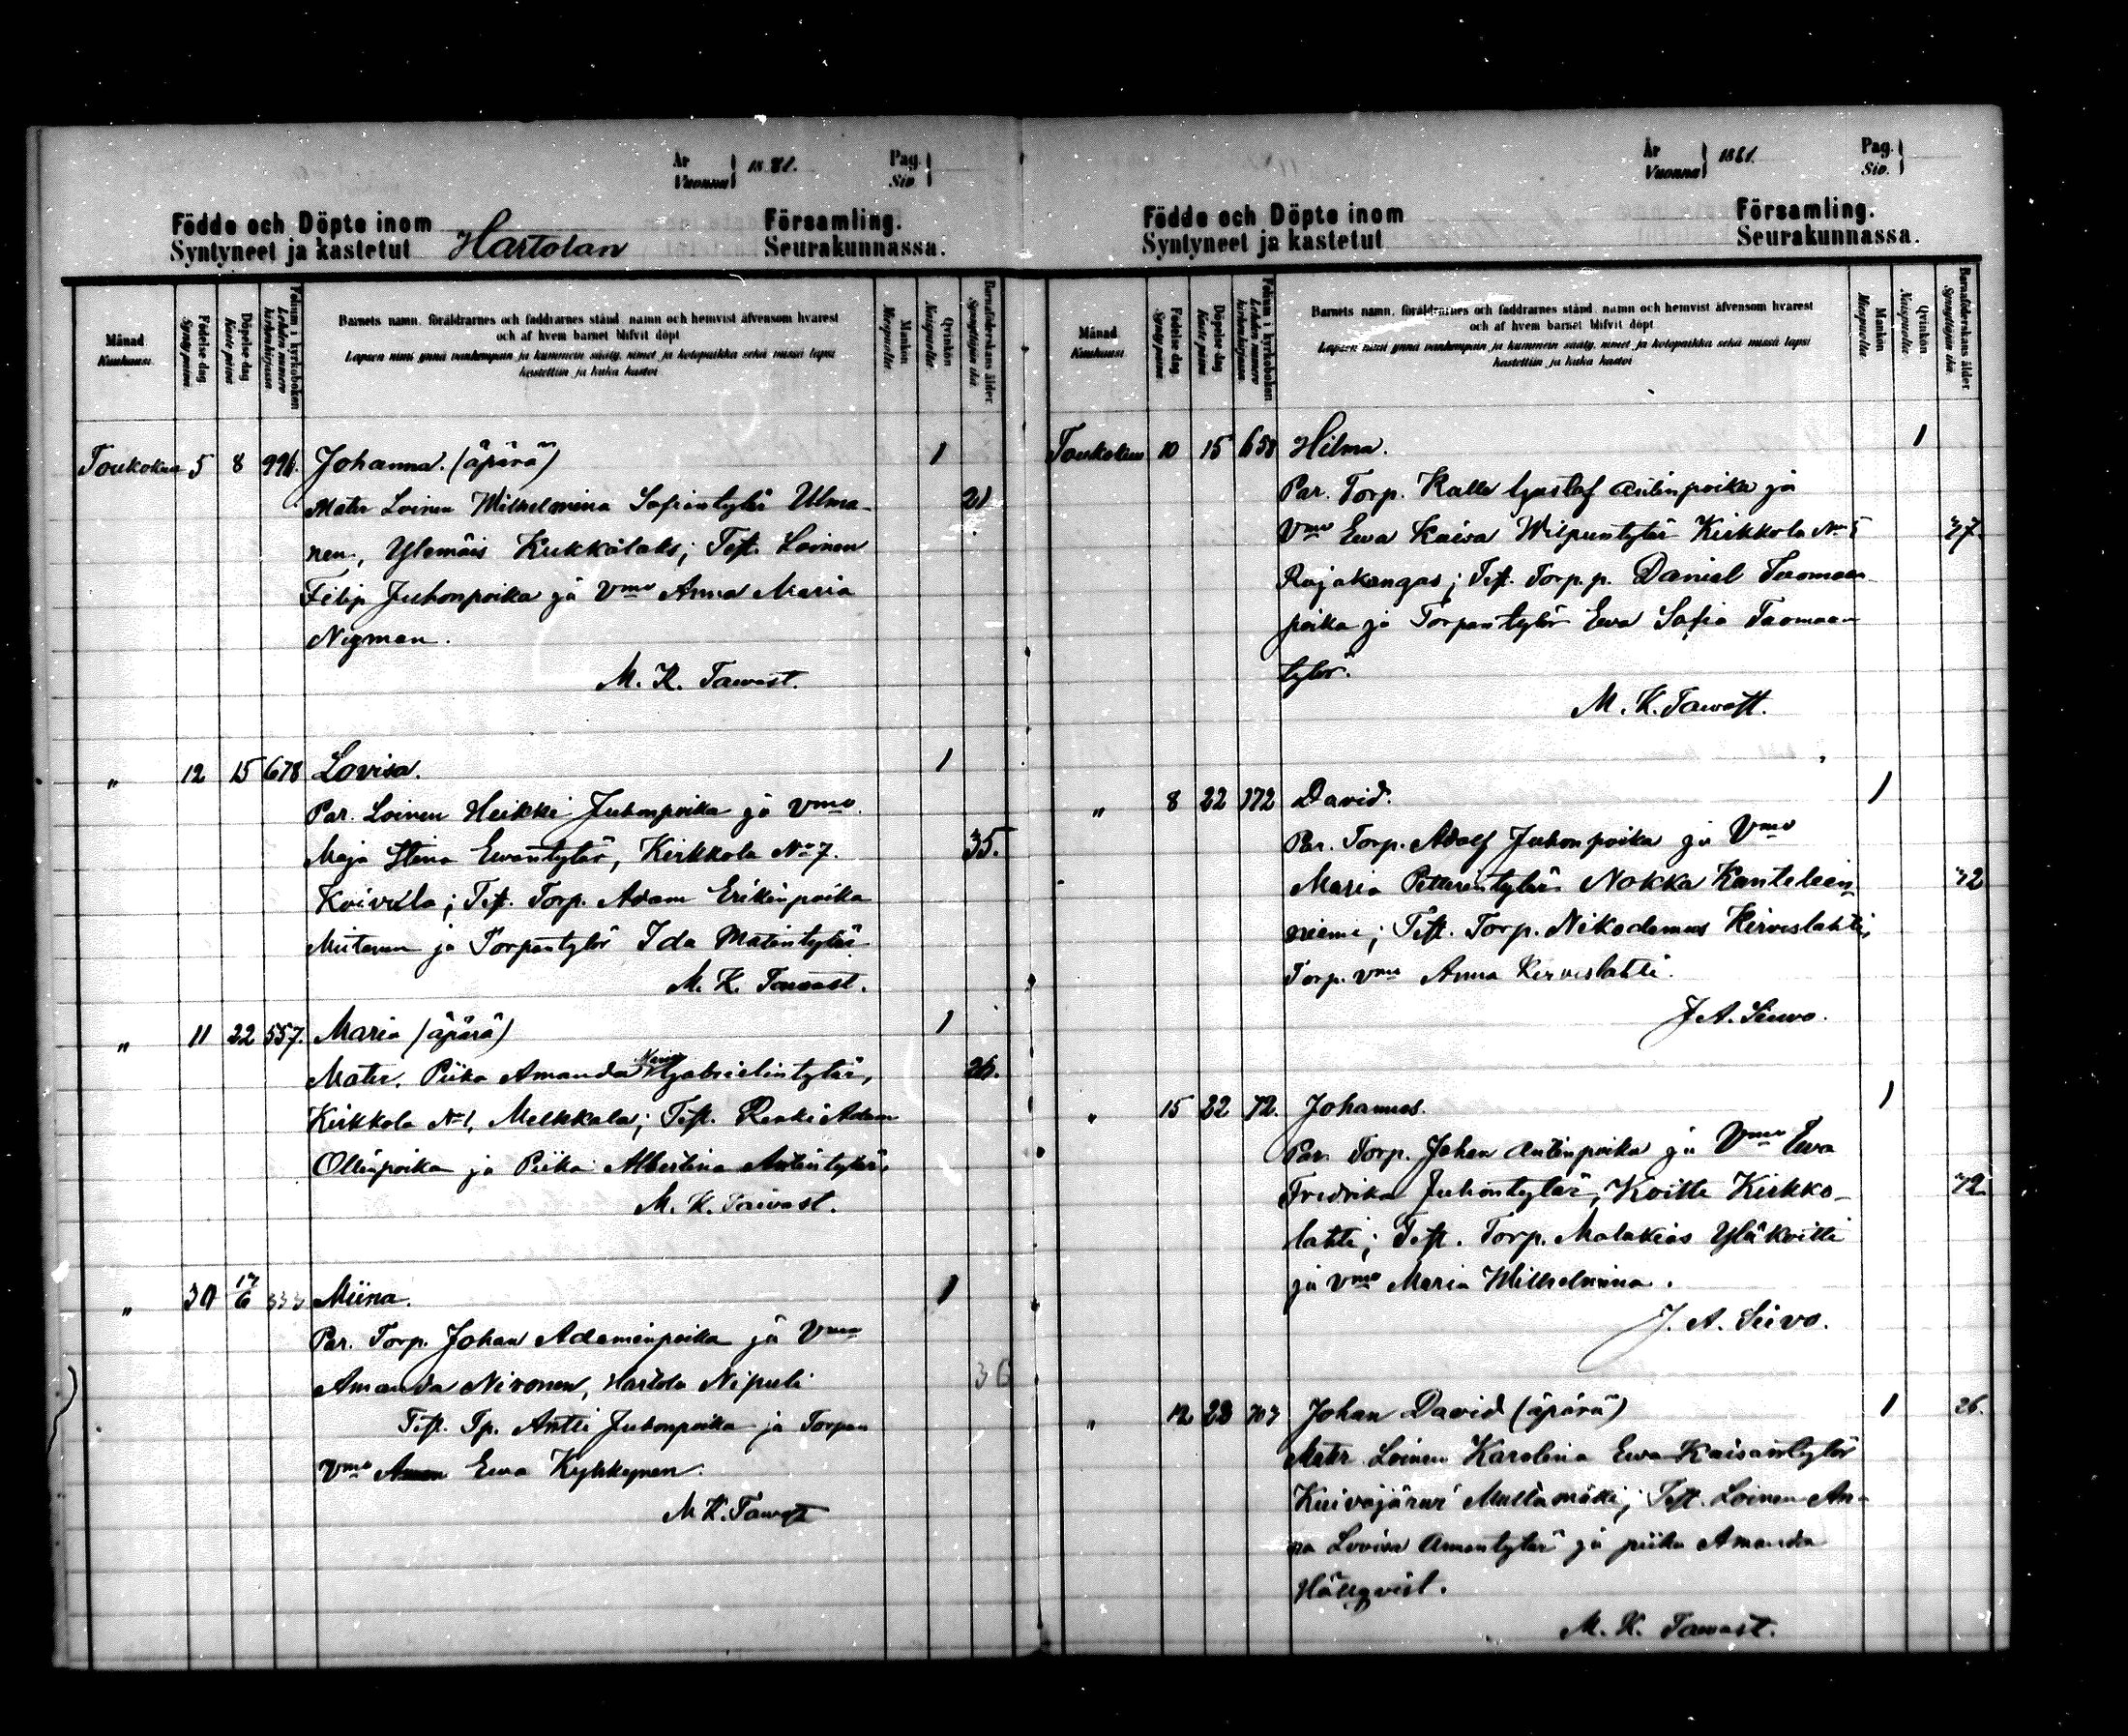 År
Vuonna 1881.
Pag.
Siv.
Födde och Döpte inom Församling.
Syntyneet ja kastetut Hartolan Seurakunnassa.
Månad
Kuukausi
Födelse dag
Synty päivä
Döpelse dag
Kaste päivä
Folium i kyrkoboken
Lehden numero kirkonkirjassa
Barnets namn, föräldrarnes och faddrarnes stånd, namn och hemvist äfvensom hvarest
och af hvem barnet blifvit döpt
Lapsen nimi ynnä vanhempain ja kummein sääty, nimet ja kotopaikka sekä missä lapsi
kastettiin ja kuka kastoi
Mankön
Miespuolia
Qvinkön
Naispuolia
Barnaföderskans ålder
Synnyttäjän ikä
Toukokuu 5 8 996. Johanna. (äpärä) 1
Mater Loinen Wilhelmina Sofiantytär Ulma- 21
nen, Ylemäis Kukkilaks; Test. Loinen
Filip Juhonpoika ja Vmo Anna Maria
Nyman.
M. K. Tawast.
" 12 15 678 Lovisa. 1
Par. Loinen Heikki Juhonpoika ja Vmo
Maja Stina Ewantytär, Kirkkola No 7. 35.
Koivula; Test. Torp. Adam Erikinpoika
Mutanen ja Torpantytär Ida Matintytär.
M. K. Tawast.
" 11 22 557. Maria (äpärä) 1
Mater. Piika Amanda Maria Gabrielintytär, 26.
Kirkkola No 1, Melkkala; Test. Renki Adam
Ollinpoika ja Piika Albertina Antintytär.
M. K. Tawast.
" 30 17/6 333 Miina. 1
Par. Torp. Johan Adaminpoika ja Vmo
Amanda Nironen, Hartola Nipuli 36
Test. Tp. Antti Juhonpoika ja Torpan
Vmo Ewa Kykkynen.
M. K. Tawast
År
Vuonna 1881.
Pag.
Siv.
Födde och Döpte inom Församling.
Syntyneet ja kastetut Seurakunnassa.
Månad
Kuukausi
Födelse dag.
Synty päivä
Döpelse dag.
Kaste päivä
Folium i kyrkoboken
Lehden numero kirkonkirjassa.
Barnets namn, föräldrarnes och faddrarnes stånd, namn och hemvist äfvensom hvarest
och af hvem barnet blifvit döpt
Lapsen nimi ynnä vanhempain ja kummein sääty, nimet ja kotopaikka sekä missä lapsi
kastettiin ja kuka kastoi
Mankön
Miespuolia
Qvinkön
Naispuolia
Barnaföderskans ålder
Synnyttäjän ikä.
Toukokuu 10 15 658 Hilma. 1
Par. Torp. Kalle Gustaf Antinpoika ja
Vmo Ewa Kaisa Wilpuntytär Kirkkola No 5 37.
Rajakangas; Test. Torp. p. Daniel Tuomaan
poika ja Torpantytär Ewa Sofia Tuomaan
tytär.
M. K. Tawast.
" 8 22 172 David. 1
Par. Torp. Adolf Juhonpoika ja Vmo
Maria Petterintytär Nokka Kanteleen 32
niemi; Test. Torp. Nikodemus Kirveslahti,
Torp. vmo Anna Kirveslahti.
J. A. Siivo.
" 15 22 72. Johannes. 1
Par. Torp. Johan Antinpoika ja Vmo Ewa
Fredrika Juhontytär, Koitti Kirkko- 42.
lahti; Test. Torp. Malakias Yläkoitti
ja vmo Maria Wilhelmina.
J. A. Siivo.
" 12 23 703 Johan David (äpärä) 1 26.
Mater Loinen Karolina Ewa Kaisantytär
Kuivajärwi Multamäki; Test. Loinen An-
na Lovisa Amantytär ja piika Amanda
Hällqvist.
M. K. Tawast.